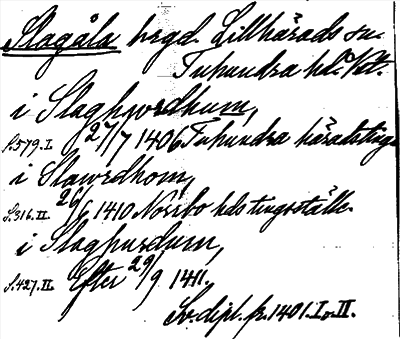 Slagåla hegd. Lillhärads sn.
Tuhundra hd. Vst.
i Slaghwrdhum,
S.579.I. 27/7 1406 Tuhundra häradsting
i Slawrdhom,
S.316.II. 26/6 1410 Norrbo hds tingsställe.
i Slaghurdum,
S.427.II. Efter 29/9 1411.
Sv. dipl. fr. 1401. I o. II.